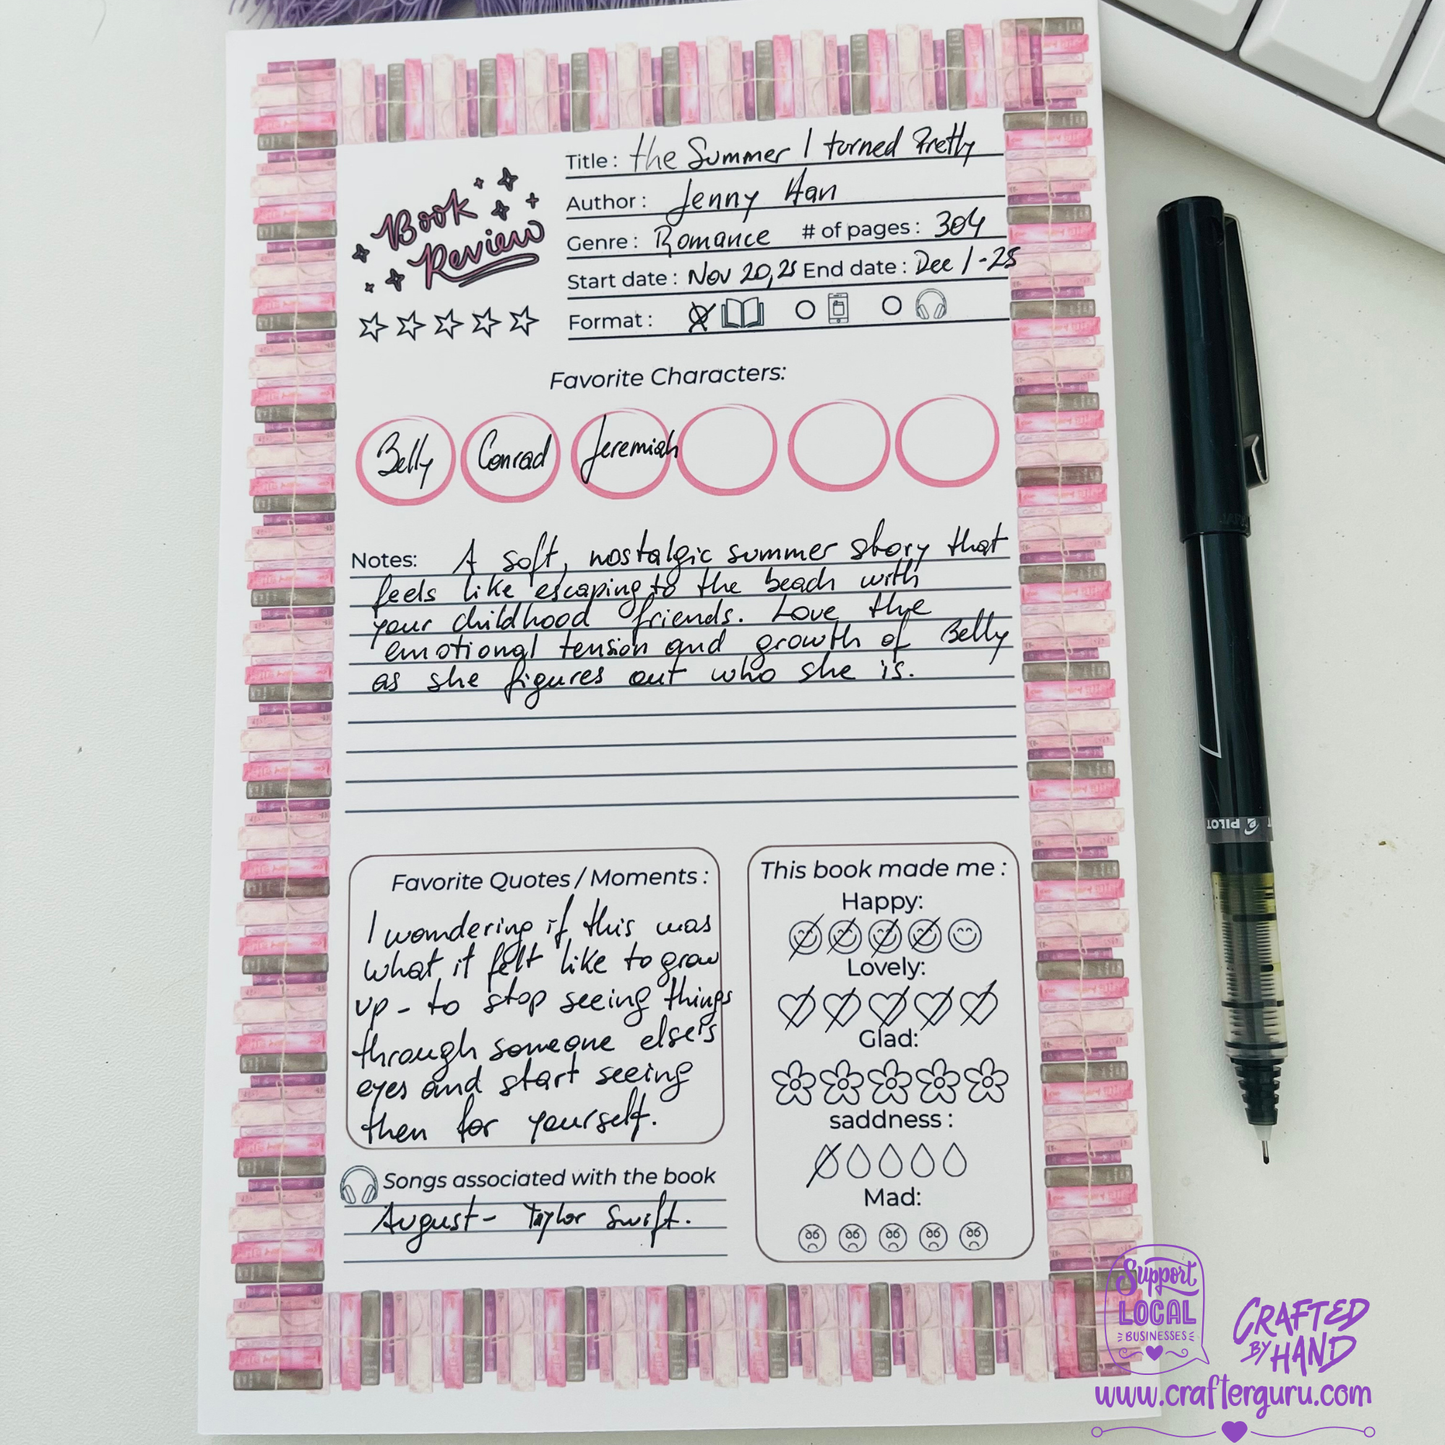 Book
Review
Title : the Summer I turned Pretty
Author : Jenny Han
Genre : Romance # of pages : 304
Start date : Nov 20,25 End date : Dec 1-25
Format :
Favorite Characters:
Belly Conrad Jeremiah
Notes: A soft, nostalgic summer story that
feels like escaping to the beach with
your childhood friends. Love the
emotional tension and growth of Belly
as she figures out who she is.
Favorite Quotes / Moments :
I womdering if this was
what it felt like to grow
up - to stop seeing things
through someone else's
eyes and start seeing
then for yourself.
Songs associated with the book
August - Taylor Swift.
This book made me :
Happy:
Lovely:
Glad:
saddness :
Mad:
PILOT
Support
LOCAL
BUSINESSES
CRAFTED
BY HAND
www.crafterguru.com